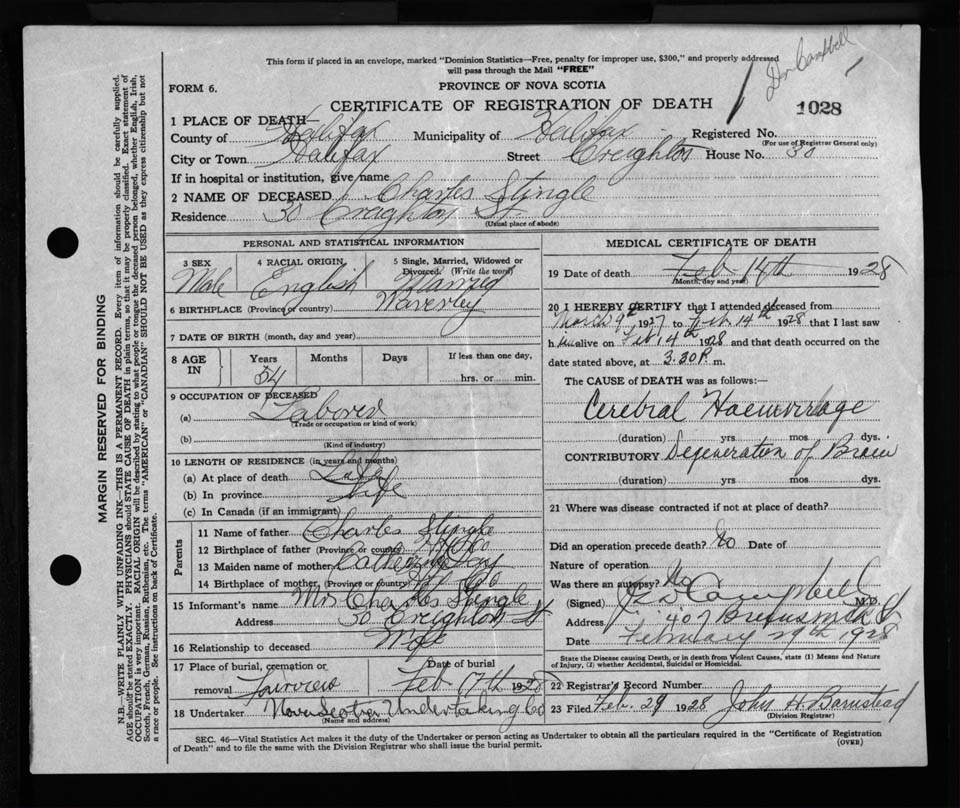 Dr Campbell
This form if placed in an envelope, marked "Dominion Statistics—Free, penalty for improper use, $300," and properly addressed
will pass through the Mail "FREE"
FORM 6.
PROVINCE OF NOVA SCOTIA
CERTIFICATE OF REGISTRATION OF DEATH
1028
1 PLACE OF DEATH
County of Halifax Municipality of Halifax Registered No.
(For use of Registrar General only)
City or Town Halifax Street Creighton House No. 30
If in hospital or institution, give name
2 NAME OF DECEASED Charles Stingle
Residence 30 Creighton St
(Usual place of abode)
MARGIN RESERVED FOR BINDING
N.B.—WRITE PLAINLY WITH UNFADING INK—THIS IS A PERMANENT RECORD. Every item of information should be carefully supplied.
AGE should be stated EXACTLY. PHYSICIANS should STATE CAUSE OF DEATH in plain terms, so that it may be properly classified. Exact statement of
OCCUPATION is very important. RACIAL ORIGIN will be described by stating to what people or tongue the deceased person belonged, whether English, Irish,
Scotch, French, German, Russian, Ruthenian, etc. The terms "AMERICAN" or "CANADIAN" SHOULD NOT BE USED as they express citizenship but not
a race or people. See instructions on back of Certificate.
PERSONAL AND STATISTICAL INFORMATION
3 SEX
Male
4 RACIAL ORIGIN
English
5 Single, Married, Widowed or
Divorced. (Write the word)
Married
6 BIRTHPLACE (Province or country) Waverley
7 DATE OF BIRTH (month, day and year)
8 AGE IN
Years Months Days If less than one day,
54 hrs. or min.
9 OCCUPATION OF DECEASED
(a) Laborer
(Trade or occupation or kind of work)
(b)
(Kind of industry)
10 LENGTH OF RESIDENCE (in years and months)
(a) At place of death Life
(b) In province Life
(c) In Canada (if an immigrant)
Parents
11 Name of father Charles Stingle
12 Birthplace of father (Province or country)
13 Maiden name of mother Catherine
14 Birthplace of mother, (Province or country)
15 Informant's name Mrs Charles Stingle
Address 30 Creighton St
16 Relationship to deceased Wife
17 Place of burial, cremation or
removal Fairview
Date of burial
Feb 17th 1928
18 Undertaker Nova Scotia Undertaking Co
(Name and address)
MEDICAL CERTIFICATE OF DEATH
19 Date of death Feb 14th 1928
(Month, day and year)
20 I HEREBY CERTIFY that I attended deceased from
March 9th 1927 to Feb 14th 1928 that I last saw
h im alive on Feb 14th 1928 and that death occurred on the
date stated above, at 3.30 P. m.
The CAUSE of DEATH was as follows:—
Cerebral Haemorrhage
(duration) yrs mos dys.
CONTRIBUTORY Degeneration of Brain
(duration) yrs. mos. dys.
21 Where was disease contracted if not at place of death?
Did an operation precede death? No Date of
Nature of operation
Was there an autopsy? No
(Signed) Campbell M.D.
Address 407 Brunswick St
Date February 29th 1928
State the Disease causing Death, or in death from Violent Causes, state (1) Means and Nature
of Injury, (2) whether Accidental, Suicidal or Homicidal.
22 Registrar's Record Number
23 Filed Feb. 29 1928 John H. Barnstead
(Division Registrar)
SEC. 46—Vital Statistics Act makes it the duty of the Undertaker or person acting as Undertaker to obtain all the particulars required in the "Certificate of Registration
of Death" and to file the same with the Division Registrar who shall issue the burial permit.
(OVER)